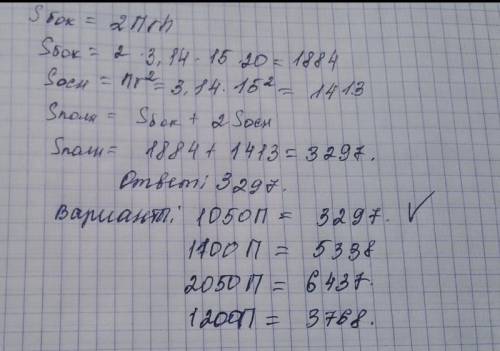 Sбок = 2Пrh
Sбок = 2 · 3,14 · 15 · 20 = 1884
Sосн = Пr² = 3,14 · 15² = 1413
Sполн = Sбок + 2 Sосн
Sполн = 1884 + 1413 = 3297.
Ответ: 3297.
Вариант: 1050П = 3297. ✓
1700П = 5338
2050П = 6437.
1200П = 3768.